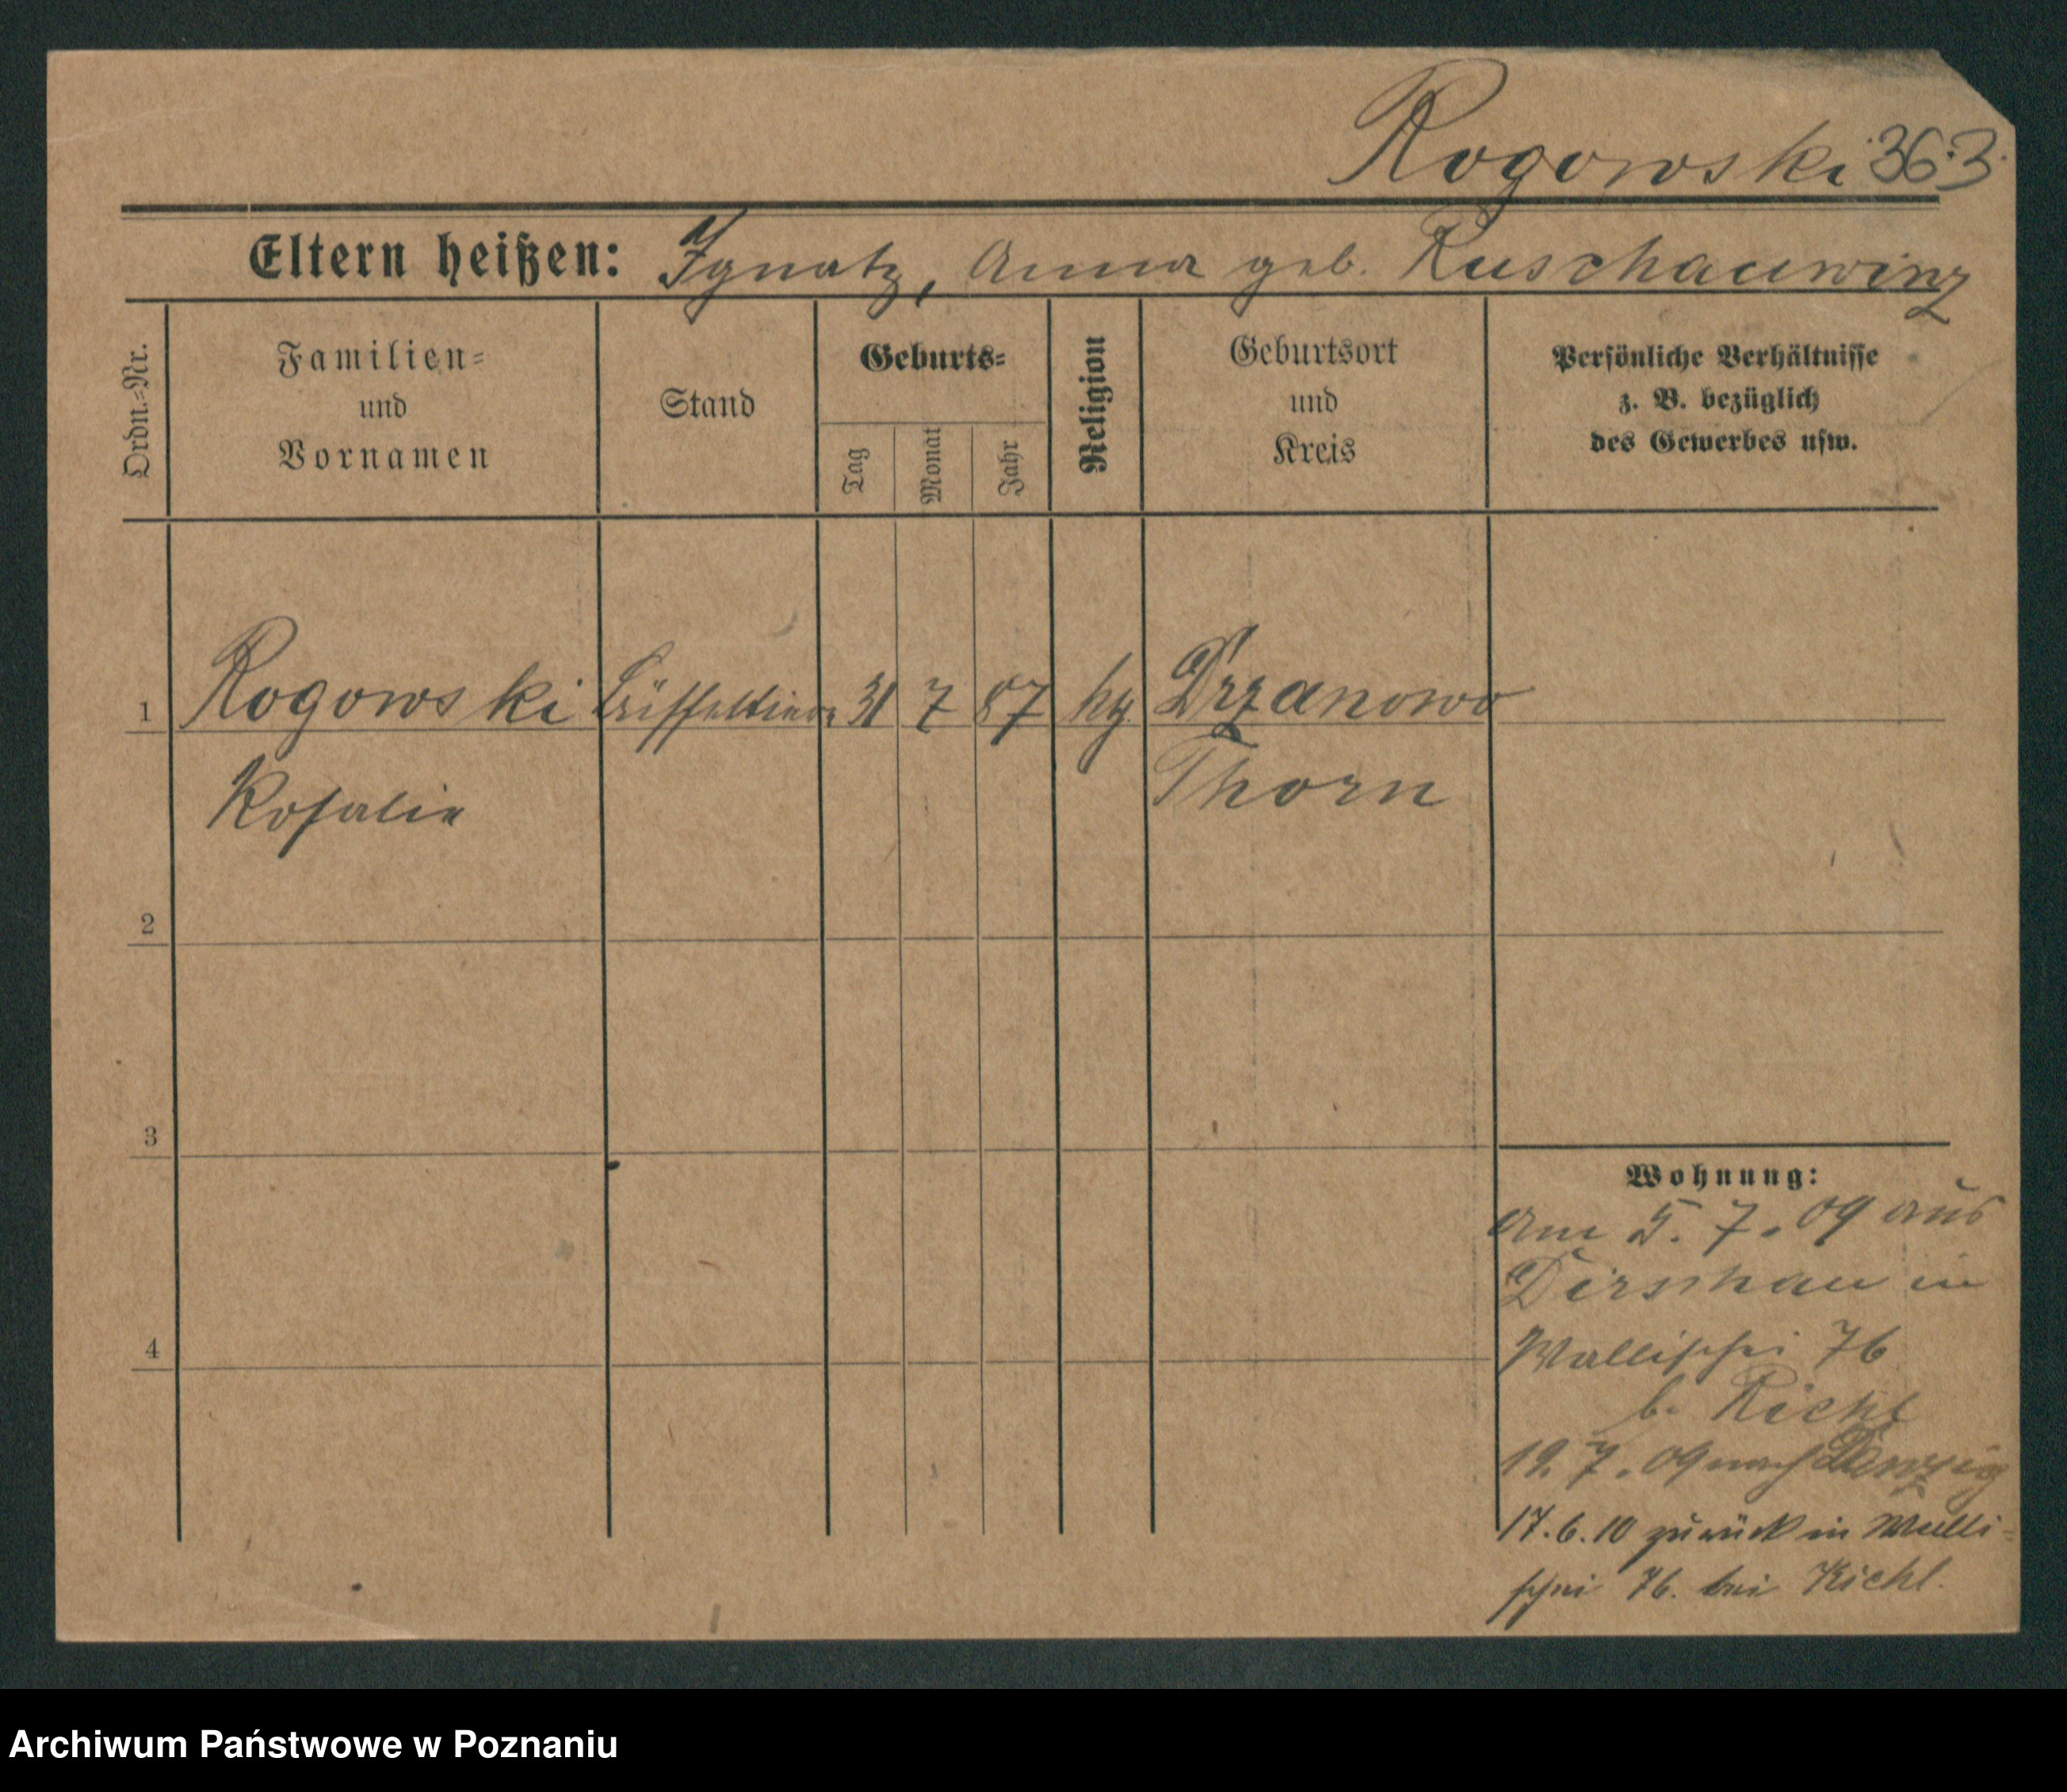 Rogowski 363.
Eltern heißen: Ignatz, Anna geb. Ruschauwinz
Ordn.-Nr.
Familien-
und
Vornamen
Stand
Geburts-
Tag
Monat
Jahr
Religion
Geburtsort
und
Kreis
Persönliche Verhältnisse
z. B. bezüglich
des Gewerbes usw.
1 Rogowski Büffettiere 31 7 87 kg. Drzanowo
Rosalie Thorn
2
3
4
Wohnung:
am 5. 7. 09 aus
Dirschau in
Wallischei 76
b. Kiehl
19. 7. 09 nach Danzig
17. 6. 10 zurück in Walli-
schei 76. bei Kiehl.
Archiwum Państwowe w Poznaniu